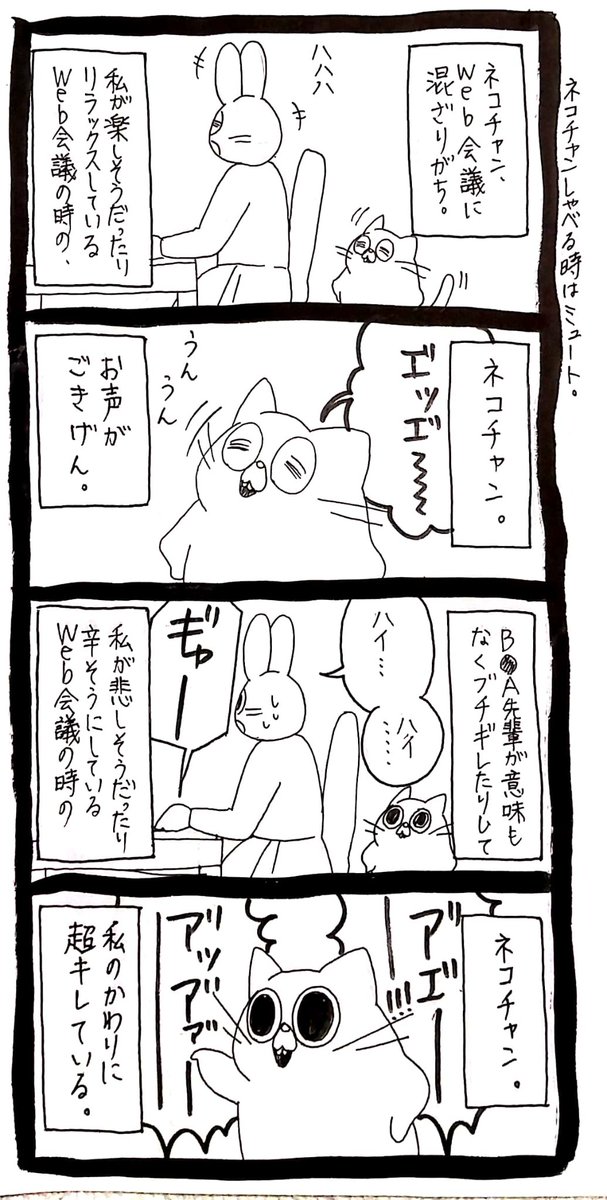 ネコチャンしゃべる時はミュート。
ネコチャン、
Web会議に
混ざりがち。
ハハハ
私が楽しそうだったり
リラックスしている
Web会議の時の、
ネコチャン。
エッエ〜〜〜
うん
うん
お声が
ごきげん。
B●A先輩が意味も
なくブチギレたりして
ハイ…
ハイ……
ギャー
私が悲しそうだったり
辛そうにしている
Web会議の時の
ネコチャン。
ア゛エ゛ーー!!!
ア゛ッア゛ァ゛ーー
私のかわりに
超キレている。